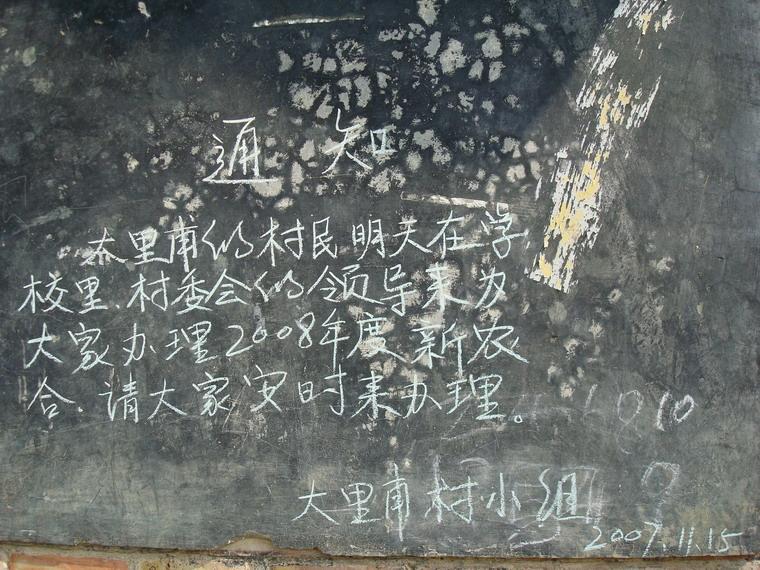 通知
大里甫的村民明天在学
校里.村委会的领导来为
大家办理2008年度新农
合.请大家安时来办理。
10
大里甫村小组
2007.11.15